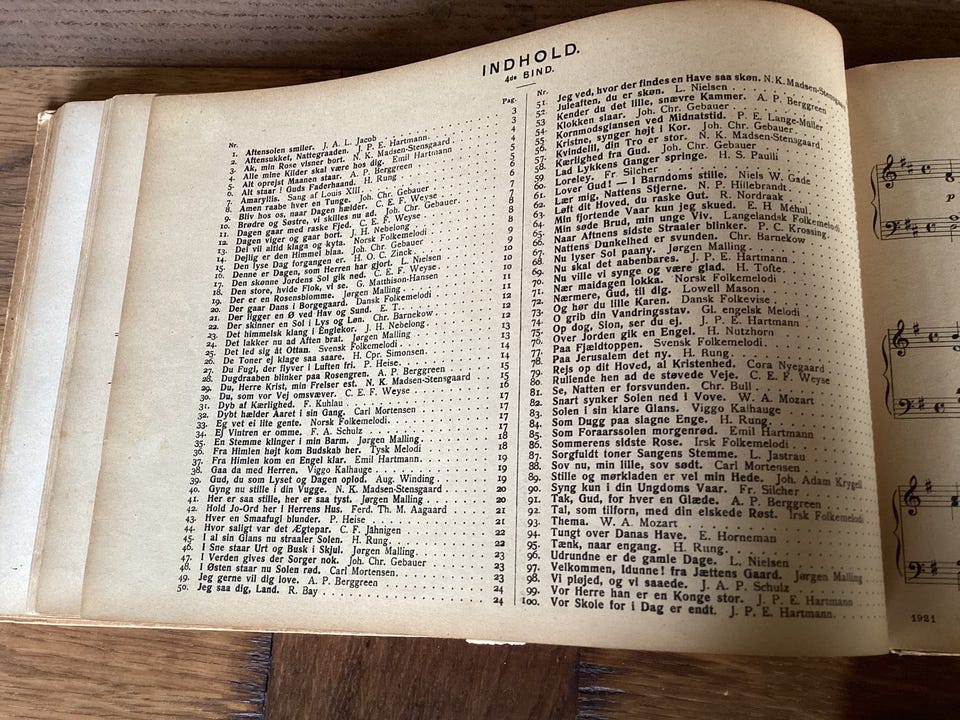 INDHOLD.
4de BIND.
Nr. Pag.
1. Aftensolen smiler. J. A. L. Jacob 3
2. Aftensukket, Nattegraaden. J. P. E. Hartmann. 3
3. Ak, min Rose visner bort. N. K. Madsen-Stensgaard 4
4. Alle mine Kilder skal være hos dig. Emil Hartmann 4
5. Alt oprejst Maanen staar. A. P. Berggreen 5
6. Alt staar i Guds Faderhaand. H. Rung 5
7. Amaryllis. Sang af Louis XIII 6
8. Amen raabe hver en Tunge. Joh. Chr. Gebauer 7
9. Bliv hos os, naar Dagen hælder. C. E. F. Weyse 7
10. Brødre og Søstre, vi skilles nu ad. Joh. Chr. Gebauer. 8
11. Dagen gaar med raske Fjed. C. E. F. Weyse 8
12. Dagen viger og gaar bort. J. H. Nebelong 8
13. Dei vil altid klaga og kyta. Norsk Folkemelodi 9
14. Dejlig er den Himmel blaa. Joh. Chr. Gebauer 9
15. Den lyse Dag forgangen er. H. O. C. Zinck 9
16. Denne er Dagen, som Herren har gjort. L. Nielsen 10
17. Den skønne Jordens Sol gik ned. C. E. F. Weyse 10
18. Den store, hvide Flok, vi se. G. Matthison-Hansen 10
19. Der er en Rosensblomme. Jørgen Malling 11
20. Der gaar Dans i Borgegaard. Dansk Folkemelodi 11
21. Der ligger en Ø ved Hav og Sund. E. T. 12
22. Der skinner en Sol i Lys og Løn. Chr. Barnekow 12
23. Det himmelsk klang i Englekor. J. H. Nebelong 12
24. Det lakker nu ad Aften brat. Jørgen Malling 13
25. Det led sig åt Ottan. Svensk Folkemelodi 13
26. De Toner ej klage saa saare. H. Cpr. Simonsen 14
27. Du Fugl, der flyver i Luften fri. P. Heise 14
28. Dugdraaben blinker paa Rosengren. A. P. Berggreen 15
29. Du, Herre Krist, min Frelser est. N. K. Madsen-Stensgaard 15
30. Du, som vor Vej omsvæver. C. E. F. Weyse 16
31. Dyb af Kærlighed. F. Kuhlau 17
32. Dybt hælder Aaret i sin Gang. Carl Mortensen 17
33. Eg vet ei lite gente. Norsk Folkemelodi 17
34. Ej Vintren er omme. F. A. Schulz 17
35. En Stemme klinger i min Barm. Jørgen Malling 18
36. Fra Himlen højt kom Budskab her. Tysk Melodi 18
37. Fra Himlen kom en Engel klar. Emil Hartmann 19
38. Gaa da med Herren. Viggo Kalhauge 19
39. Gud, du som Lyset og Dagen oplod. Aug. Winding 19
40. Gyng nu stille i din Vugge. N. K. Madsen-Stensgaard 20
41. Her er saa stille, her er saa tyst. Jørgen Malling 20
42. Hold Jo-Ord her i Herrens Hus. Ferd. Th. M. Aagaard 21
43. Hver en Smaafugl blunder. P. Heise 21
44. Hvor saligt var det Ægtepar. C. F. Jähnigen 22
45. I al sin Glans nu straaler Solen. H. Rung 22
46. I Sne staar Urt og Busk i Skjul. Jørgen Malling 22
47. I Verden gives der Sorger nok. Joh. Chr. Gebauer 23
48. I Østen staar nu Solen rød. Carl Mortensen 23
49. Jeg gerne vil dig love. A. P. Berggreen 24
50. Jeg saa dig, Land. R. Bay 24
Nr.
51. Jeg ved, hvor der findes en Have saa skøn. N. K. Madsen-Stensgaard
52. Juleaften, du er skøn. L. Nielsen
53. Kender du det lille, snævre Kammer. A. P. Berggreen
54. Klokken slaar. Joh. Chr. Gebauer
55. Kornmodsglansen ved Midnatstid. P. E. Lange-Müller
56. Kristne, synger højt i Kor. Joh. Chr. Gebauer
57. Kvindelil, din Tro er stor. N. K. Madsen-Stensgaard
58. Kærlighed fra Gud. Joh. Chr. Gebauer
59. Lad Lykkens Ganger springe. H. S. Paulli
60. Loreley. Fr. Silcher
61. Lover Gud! — I Barndoms stille. Niels W. Gade
62. Lær mig, Nattens Stjerne. N. P. Hillebrandt
63. Løft dit Hoved, du raske Gut. R. Nordraak
64. Min fjortende Vaar kun jeg skued. E. H. Méhul
65. Min søde Brud, min unge Viv. Langelandsk Folkemelodi
66. Naar Aftnens sidste Straaler blinker. P. C. Krossing
67. Nattens Dunkelhed er svunden. Chr. Barnekow
68. Nu lyser Sol paany. Jørgen Malling
69. Nu skal det aabenbares. J. P. E. Hartmann
70. Nu ville vi synge og være glad. H. Tofte
71. Nær maldagen lokka. Norsk Folkemelodi
72. Nærmere, Gud, til dig. Lowell Mason
73. Og hør du lille Karen. Dansk Folkevise
74. O grib din Vandringsstav. Gl. engelsk Melodi
75. Op dog, Sion, ser du ej. J. P. E. Hartmann
76. Over Jorden gik en Engel. H. Nutzhorn
77. Paa Fjældtoppen. Svensk Folkemelodi
78. Paa Jerusalem det ny. H. Rung
79. Rejs op dit Hoved, al Kristenhed. Cora Nyegaard
80. Rullende hen ad de støvede Veje. C. E. F. Weyse
81. Se, Natten er forsvunden. Chr. Bull
82. Snart synker Solen ned i Vove. W. A. Mozart
83. Solen i sin klare Glans. Viggo Kalhauge
84. Som Dugg paa slagne Enge. H. Rung
85. Som Foraarssolen morgenrød. Emil Hartmann
86. Sommerens sidste Rose. Irsk Folkemelodi
87. Sorgfuldt toner Sangens Stemme. L. Jastrau
88. Sov nu, min lille, sov sødt. Carl Mortensen
89. Stille og mørkladen er vel min Hede. Joh. Adam Krygell
90. Syng kun i din Ungdoms Vaar. Fr. Silcher
91. Tak, Gud, for hver en Glæde. A. P. Berggreen
92. Tal, som tilforn, med din elskede Røst. Irsk Folkemelodi
93. Thema. W. A. Mozart
94. Tungt over Danas Have. E. Horneman
95. Tænk, naar engang. H. Rung
96. Udrundne er de gamle Dage. L. Nielsen
97. Velkommen, Idunne! fra Jættens Gaard. Jørgen Malling
98. Vi pløjed, og vi saaede. J. A. P. Schulz
99. Vor Herre han er en Konge stor. J. P. E. Hartmann
100. Vor Skole for i Dag er endt. J. P. E. Hartmann
p
1921